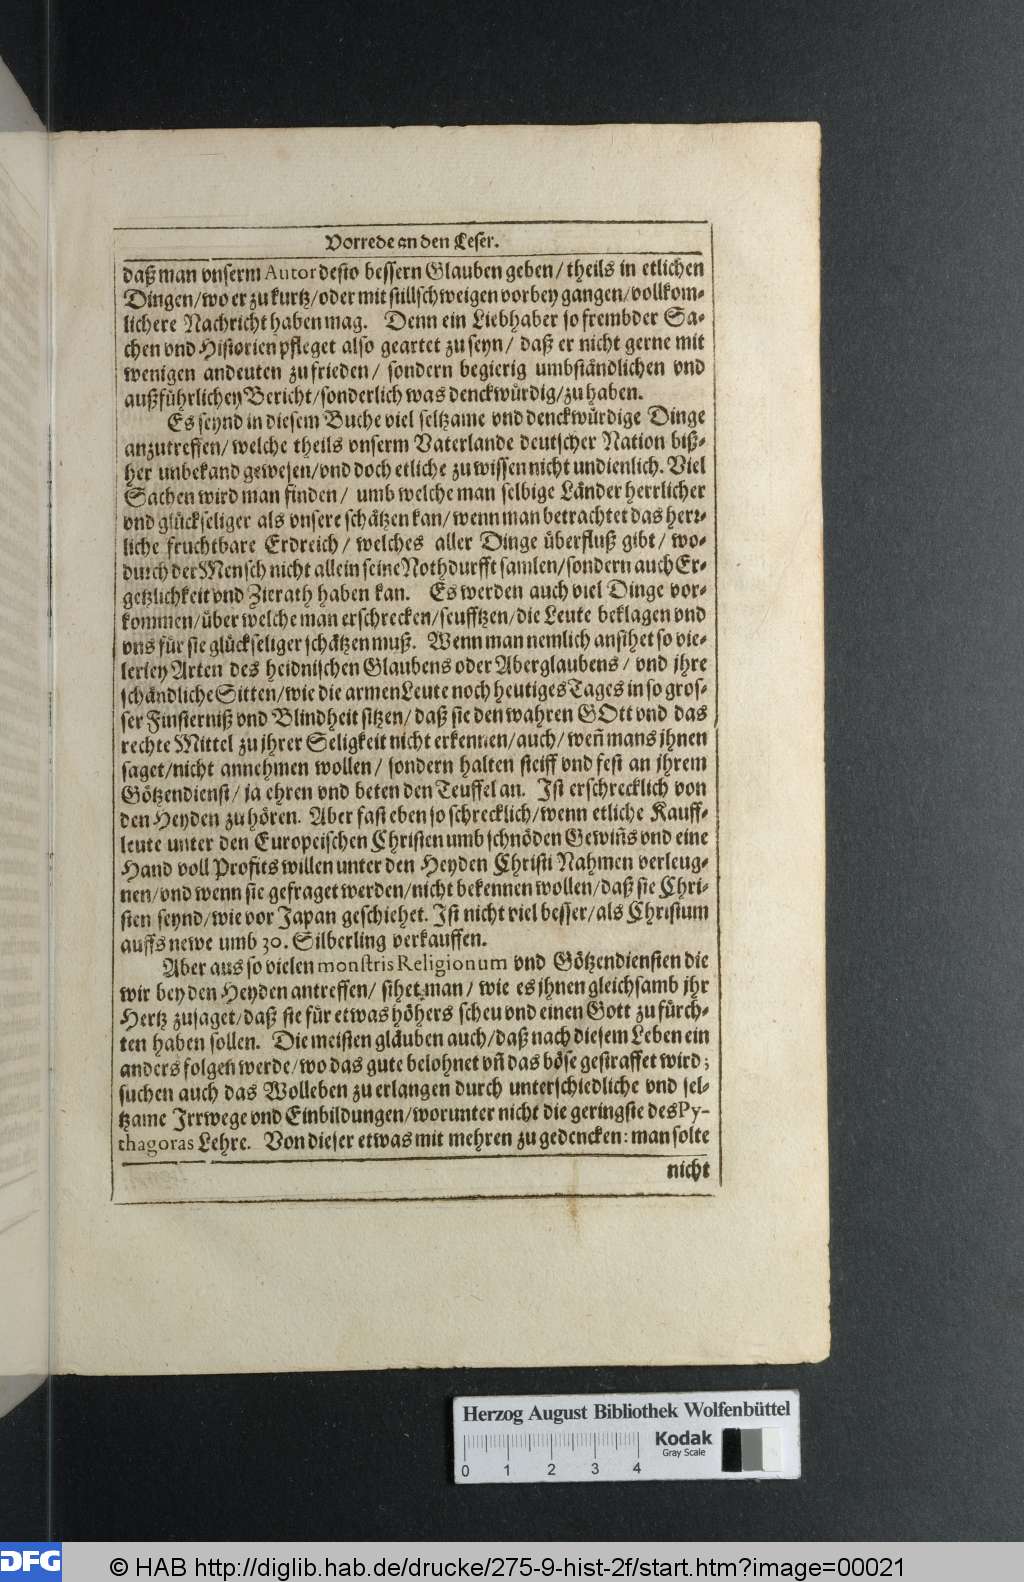 Vorrede an den Leser.
daß man vnserm Autor desto bessern Glauben geben/ theils in etlichen
Dingen/ wo er zu kurtz/ oder mit stillschweigen vorbey gangen/ vollkom-
lichere Nachricht haben mag. Denn ein Liebhaber so frembder Sa-
chen vnd Historien pfleget also geartet zu seyn/ daß er nicht gerne mit
wenigen andeuten zu frieden/ sondern begierig umbständlichen vnd
außführlichen Bericht/ sonderlich was denckwürdig/ zu haben.
Es seynd in diesem Buche viel seltzame vnd denckwürdige Dinge
anzutreffen/ welche theils vnserm Vaterlande deutscher Nation biß-
her unbekand gewesen/ vnd doch etliche zu wissen nicht undienlich. Viel
Sachen wird man finden/ umb welche man selbige Länder herrlicher
vnd glückseliger als vnsere schätzen kan/ wenn man betrachtet das herr-
liche fruchtbare Erdreich/ welches aller Dinge überfluß gibt/ wo-
durch der Mensch nicht allein seine Nothdurfft samlen/ sondern auch Er-
getzlichkeit vnd Zierath haben kan. Es werden auch viel Dinge vor-
kommen/ über welche man erschrecken/ seufftzen/ die Leute beklagen vnd
vns für sie glückseliger schätzen muß. Wenn man nemlich ansihet so vie-
lerley Arten des heidnischen Glaubens oder Aberglaubens/ vnd jhre
schändliche Sitten/ wie die armen Leute noch heutiges Tages in so gros-
ser Finsterniß vnd Blindheit sitzen/ daß sie den wahren GOtt vnd das
rechte Mittel zu jhrer Seligkeit nicht erkennen/ auch/ weñ mans jhnen
saget/ nicht annehmen wollen/ sondern halten steiff vnd fest an jhrem
Götzendienst/ ja ehren vnd beten den Teuffel an. Ist erschrecklich von
den Heyden zu hören. Aber fast eben so schrecklich/ wenn etliche Kauff-
leute unter den Europeischen Christen umb schnöden Gewiñs vnd eine
Hand voll Profits willen unter den Heyden Christi Nahmen verleug-
nen/ vnd wenn sie gefraget werden/ nicht bekennen wollen/ daß sie Chri-
sten seynd/ wie vor Japan geschiehet. Ist nicht viel besser/ als Christum
auffs newe umb 30. Silberling verkauffen.
Aber aus so vielen monstris Religionum vnd Götzendiensten die
wir bey den Heyden antreffen/ sihet man/ wie es jhnen gleichsamb jhr
Hertz zusaget/ daß sie für etwas höhers scheu vnd einen Gott zu fürch-
ten haben sollen. Die meisten gläuben auch/ daß nach diesem Leben ein
anders folgen werde/ wo das gute belohnet vñ das böse gestraffet wird;
suchen auch das Wolleben zu erlangen durch unterschiedliche vnd sel-
tzame Irrwege vnd Einbildungen/ worunter nicht die geringste des Py-
thagoras Lehre. Von dieser etwas mit mehren zu gedencken: man solte
nicht
Herzog August Bibliothek Wolfenbüttel
Kodak
Gray Scale
0 1 2 3 4
DFG
© HAB http://diglib.hab.de/drucke/275-9-hist-2f/start.htm?image=00021